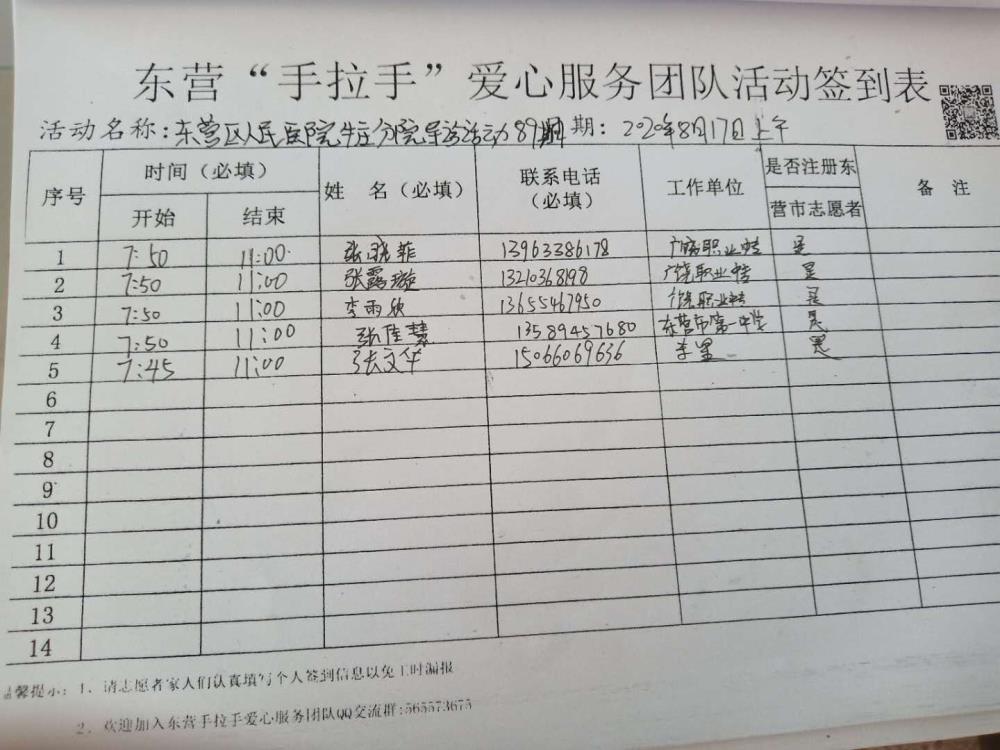 东营“手拉手”爱心服务团队活动签到表
活动名称:东营区人民医院牛庄分院导诊活动89期 期:2020年8月17日上午
序号 时间(必填) 姓 名(必填) 联系电话(必填) 工作单位 是否注册东营市志愿者 备 注
开始 结束
1 7:50 11:00 张晓菲 13963386178 广饶职业中专 是
2 7:50 11:00 张露璇 13210368198 广饶职业中专 是
3 7:50 11:00 李雨欣 13655467950 广饶职业中专 是
4 7:50 11:00 张佳慧 13589457680 东营市第一中学 是
5 7:45 11:00 张文华 15066069636 是
6
7
8
9
10
11
12
13
14
温馨提示:1、请志愿者家人们认真填写个人签到信息以免工时漏报
2、欢迎加入东营手拉手爱心服务团队QQ交流群:565573675